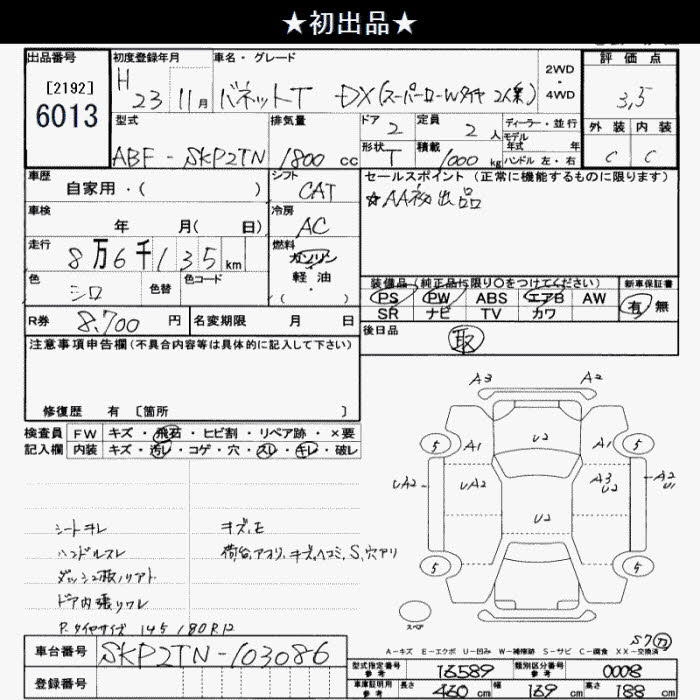 ★初出品★
出品番号 初度登録年月 車名・グレード 2WD・4WD 評価点
[2192] 6013 H 23 11月 バネットT DX(スーパーローWタイヤ 2人乗) 3.5
型式 排気量 ドア 2 定員 2人 ディーラー・並行 外装 内装
モデル年式 年式
ABF-SKP2TN 1800cc 形状 T 積載 1000kg ハンドル 左・右 C C
車歴 シフト セールスポイント(正常に機能するものに限ります)
自家用・( ) CAT ☆AA初出品
車検 冷房
年 月( 日) AC
走行 燃料
8万6千135km ガソリン・軽油・( )
色 シロ 色替 色コード 装備品(純正品に限り○をつけてください) 新車保証書
PS PW ABS エアB AW 有 無
SR ナビ TV カワ
R券 8,700円 名変期限 月 日 後日品 取
注意事項申告欄(不具合内容等は具体的に記入して下さい)
修復歴 有 〔箇所 〕
検査員記入欄
FW キズ・飛石・ヒビ割・リペア跡・×要
内装 キズ・汚レ・コゲ・穴・スレ・キレ・破レ
A3 A2
5 A1 U2 A1 5
UA2 UA2 A3 U2 A2 U1
U2
5 5
スペア
シートキレ キズ、モ
ハンドルスレ 荷台、アオリ、キズ、ヘコミ、S、穴アリ
ダッシュ板ノリアト
ドア内張りワレ
P.タイヤサイズ 145/80R12
S7
A-キズ E-エクボ U-凹み W-補修跡 S-サビ C-腐食 XX-交換済
車台番号 SKP2TN-103086
登録番号
型式指定番号 参考 16589 類別区分番号 参考 0008
車庫証明用 参考 長さ 460cm 幅 169cm 高さ 188cm